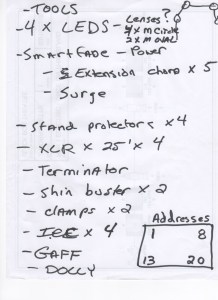 - TOOLS
- 4 x LEDS - Lenses?
4x m Circle
2x m OVAL
- Smartfade - Power
- Extension chord x 5
- Surge
- Stand protectors x 4
- XLR x 25' x 4
- Terminator
- Shin buster x 2
- clamps x 2
- IEC x 4
- GAFF
- DOLLY
Addresses
1 8
13 20